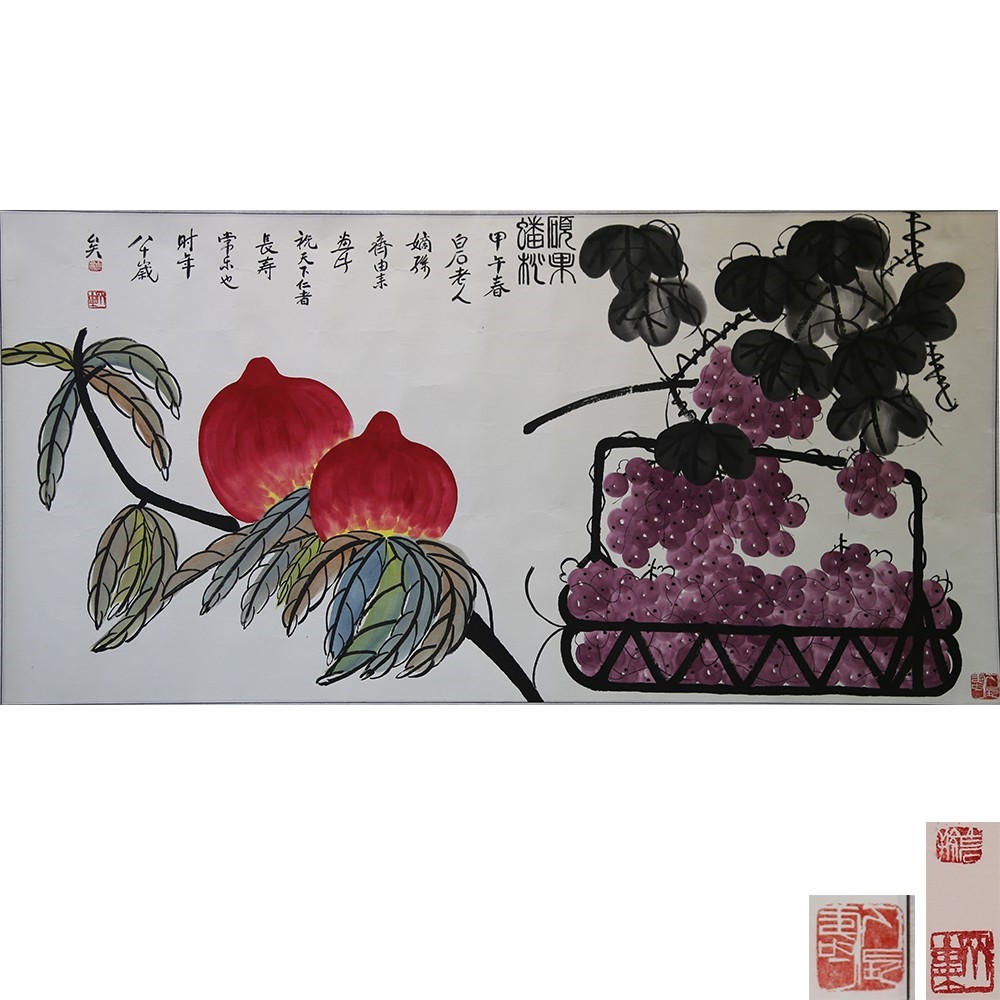 碩果
蟠桃
甲午春
白石老人
嫡孫
齊由来
祝天下仁者
長寿
常乐也
时年
八十歲
矣